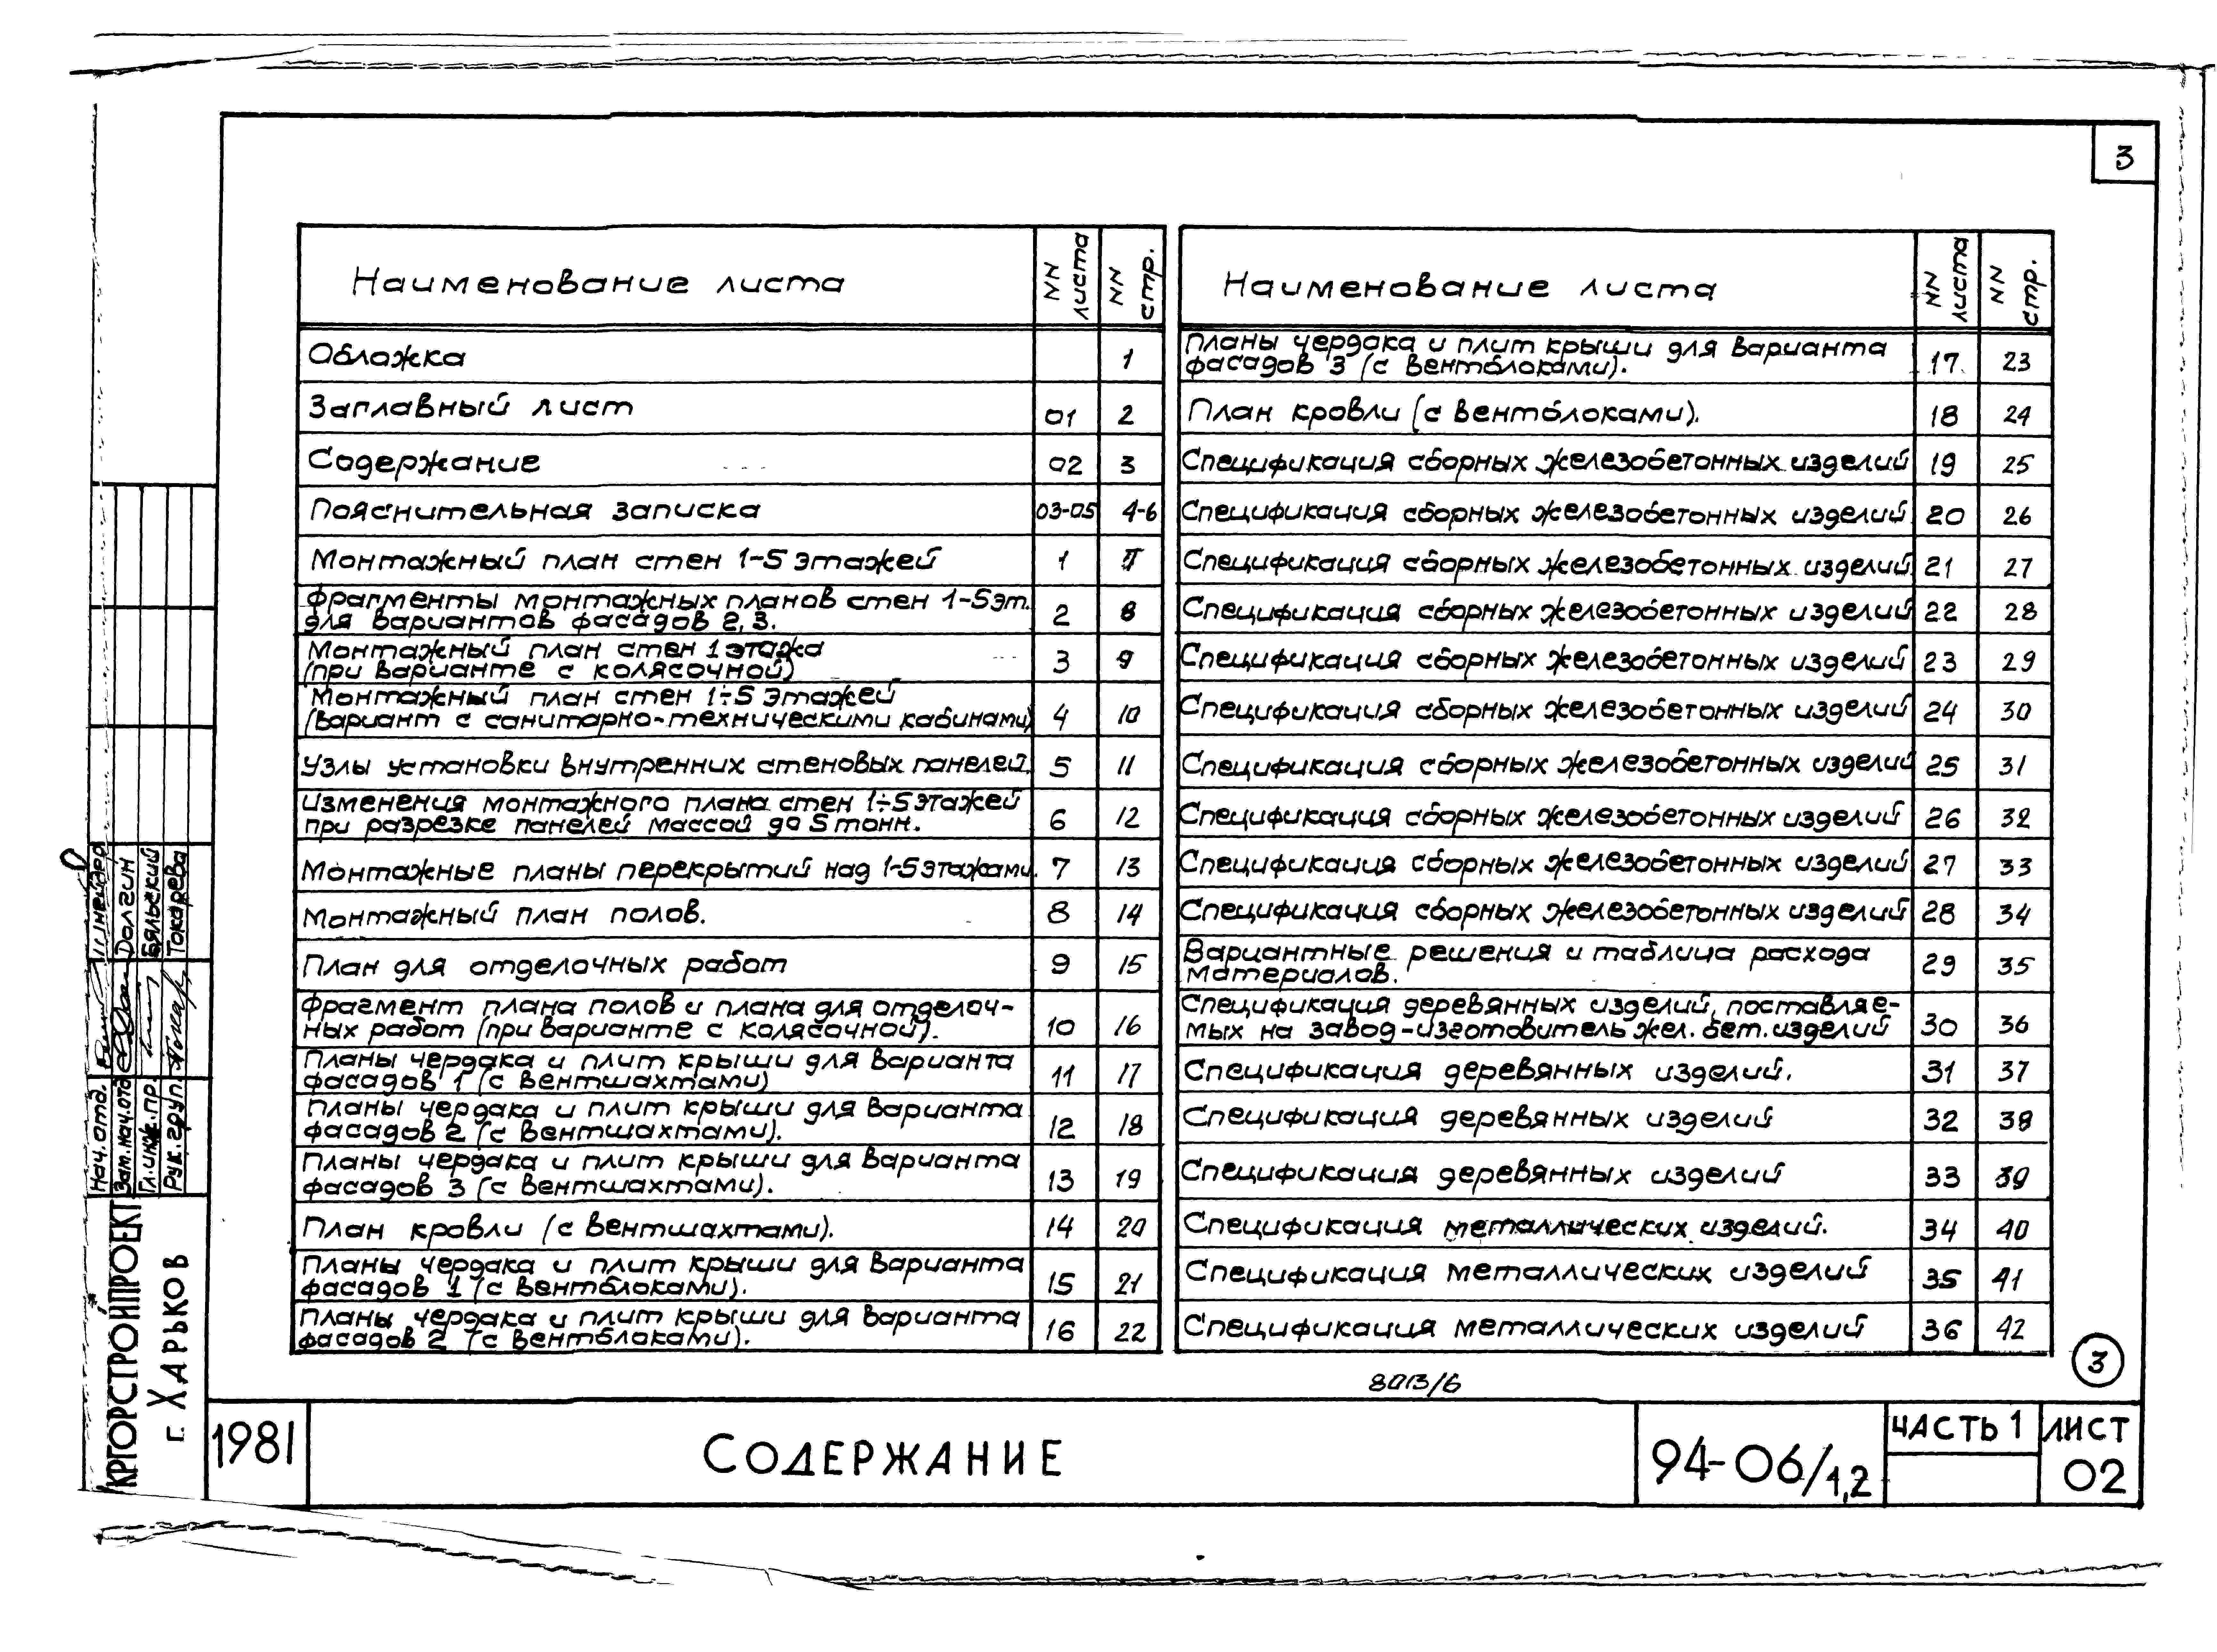 3
Наименование листа
NN листа
NN стр.
Обложка 1
Заглавный лист 01 2
Содержание 02 3
Пояснительная записка 03-05 4-6
Монтажный план стен 1-5 этажей 1 7
Фрагменты монтажных планов стен 1-5 эт.
для вариантов фасадов 2, 3. 2 8
Монтажный план стен 1 этажа
(при варианте с колясочной) 3 9
Монтажный план стен 1÷5 этажей
(вариант с санитарно-техническими кабинами) 4 10
Узлы установки внутренних стеновых панелей. 5 11
Изменения монтажного плана стен 1÷5 этажей
при разрезке панелей массой до 5 тонн. 6 12
Монтажные планы перекрытий над 1-5 этажами. 7 13
Монтажный план полов. 8 14
План для отделочных работ 9 15
Фрагмент плана полов и плана для отделоч-
ных работ (при варианте с колясочной). 10 16
Планы чердака и плит крыши для варианта
фасадов 1 (с вентшахтами) 11 17
Планы чердака и плит крыши для варианта
фасадов 2 (с вентшахтами). 12 18
Планы чердака и плит крыши для варианта
фасадов 3 (с вентшахтами). 13 19
План кровли (с вентшахтами). 14 20
Планы чердака и плит крыши для варианта
фасадов 1 (с вентблоками). 15 21
Планы чердака и плит крыши для варианта
фасадов 2 (с вентблоками). 16 22
Наименование листа
NN листа
NN стр.
Планы чердака и плит крыши для варианта
фасадов 3 (с вентблоками). 17 23
План кровли (с вентблоками). 18 24
Спецификация сборных железобетонных изделий 19 25
Спецификация сборных железобетонных изделий 20 26
Спецификация сборных железобетонных изделий 21 27
Спецификация сборных железобетонных изделий 22 28
Спецификация сборных железобетонных изделий 23 29
Спецификация сборных железобетонных изделий 24 30
Спецификация сборных железобетонных изделий 25 31
Спецификация сборных железобетонных изделий 26 32
Спецификация сборных железобетонных изделий 27 33
Спецификация сборных железобетонных изделий 28 34
Вариантные решения и таблица расхода
материалов. 29 35
Спецификация деревянных изделий, поставляе-
мых на завод-изготовитель жел. бет. изделий 30 36
Спецификация деревянных изделий. 31 37
Спецификация деревянных изделий 32 38
Спецификация деревянных изделий 33 39
Спецификация металлических изделий. 34 40
Спецификация металлических изделий 35 41
Спецификация металлических изделий 36 42
3
8013/6
Нач. отд. Шнейдер
Зам. нач. отд. Долгин
Гл. инж. пр. Бяльский
Рук. груп. Токарева
УКРГОРСТРОЙПРОЕКТ
г. Харьков
1981
СОДЕРЖАНИЕ
94-06/1,2
ЧАСТЬ 1
ЛИСТ
02